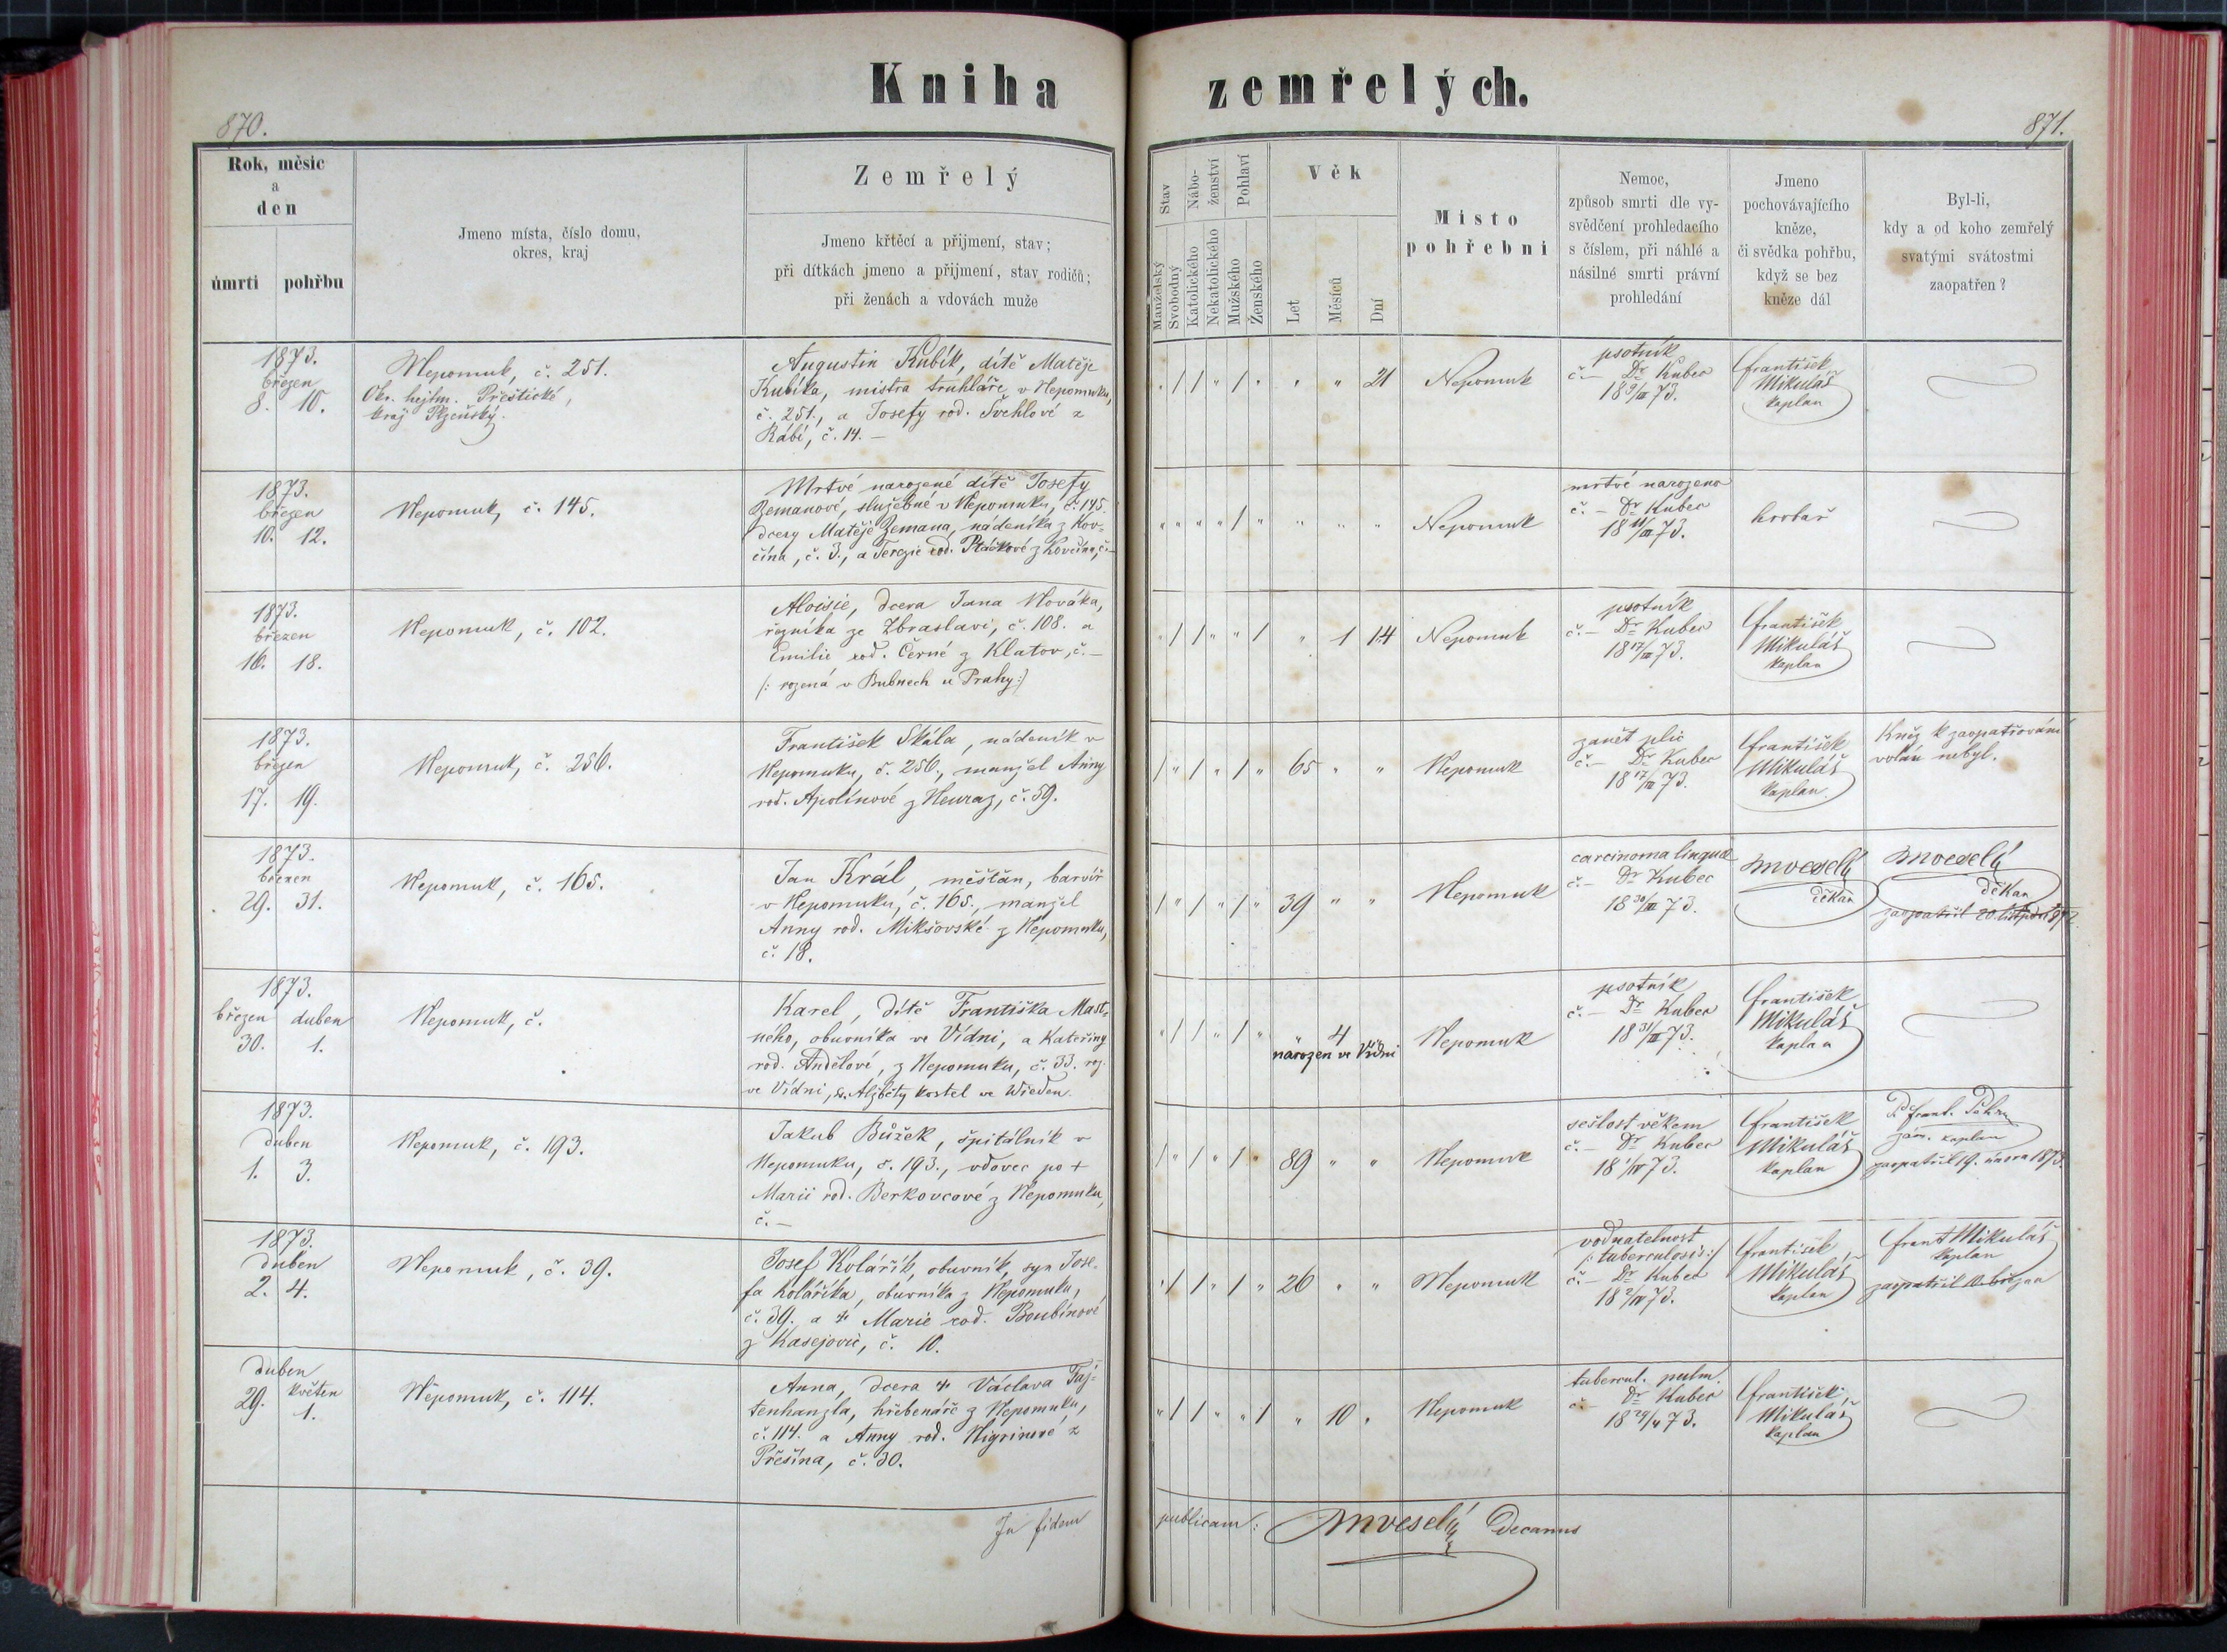 Kniha zemřelých.
870.
871.
Rok, měsíc
a
den
úmrtí
pohřbu
Jmeno místa, číslo domu,
okres, kraj
Zemřelý
Jmeno křtěcí a přijmení, stav;
při dítkách jmeno a přijmení, stav rodičů;
při ženách a vdovách muže
Stav
Manželský
Svobodný
Nábo-
ženství
Katolického
Nekatolického
Pohlaví
Mužského
Ženského
Věk
Let
Měsíců
Dní
Místo
pohřební
Nemoc,
způsob smrti dle vy-
svědčení prohledacího
s číslem, při náhlé a
násilné smrti právní
prohledání
Jmeno
pochovávajícího
kněze,
či svědka pohřbu,
když se bez
kněze dál
Byl-li,
kdy a od koho zemřelý
svatými svátostmi
zaopatřen?
1873.
březen
8. 10.
Nepomuk, č. 251.
Okr. hejtm. Přeštické,
kraj Plzeňský.
Augustin Kubík, dítě Matěje
Kubíka, mistra truhláře v Nepomuku,
č. 251., a Josefy rod. Švehlové z
Rábí, č. 14. –
" / / " / " " " 21
Nepomuk
psotník
č. – Dr Kubec
18 9/III 73.
František
Mikuláš
kaplan
1873.
březen
10. 12.
Nepomuk, č. 145.
Mrtvé narozené dítě Josefy
Zemanové, služebné v Nepomuku, č. 145.
dcery Matěje Zemana, nádeníka z Kov-
čína, č. 3., a Terezie rod. Ptáčkové z Kovčína, č. –
" " " " / " " " "
Nepomuk
mrtvé narozeno
č. – Dr Kubec
18 11/III 73.
hrobař
1873.
březen
16. 18.
Nepomuk, č. 102.
Aloisie, dcera Jana Nováka,
řezníka ze Zbraslavi, č. 108. a
Emilie rod. Černé z Klatov, č. –
/: rozená v Bubnech u Prahy :/
" / / " " / " 1 14
Nepomuk
psotník
č. – Dr Kubec
18 17/III 73.
František
Mikuláš
kaplan
1873.
březen
17. 19.
Nepomuk, č. 256.
František Skála, nádeník v
Nepomuku, č. 256., manžel Anny
rod. Apolínové z Neuraz, č. 59.
/ " / " / " 65 " "
Nepomuk
zánět plic
č. – Dr Kubec
18 17/III 73.
František
Mikuláš
kaplan
Kněz k zaopatřování
volán nebyl.
1873.
březen
29. 31.
Nepomuk, č. 165.
Jan Král, měšťan, barvíř
v Nepomuku, č. 165., manžel
Anny rod. Mikšovské z Nepomuku,
č. 18.
/ " / " / " 39 " "
Nepomuk
carcinoma linguae
č. – Dr Kubec
18 30/III 73.
Anveselý
děkan
Anveselý
děkan
zaopatřil 20. listopadu 872.
1873.
březen duben
30. 1.
Nepomuk, č.
Karel, dítě Františka Mast-
ného, obuvníka ve Vídni, a Kateřiny
rod. Andělové, z Nepomuku, č. 33. roz.
ve Vídni, sv. Alžběty kostel ve Wieden.
" / / " / " " 4 "
narozen ve Vídni
Nepomuk
psotník
č. – Dr Kubec
18 31/III 73.
František
Mikuláš
kaplan
1873.
duben
1. 3.
Nepomuk, č. 193.
Jakub Bůžek, špitálník v
Nepomuku, č. 193., vdovec po +
Marii rod. Berkovcové z Nepomuku,
č. –
/ " / " / " 89 " "
Nepomuk
sešlost věkem
č. – Dr Kubec
18 1/IV 73.
František
Mikuláš
kaplan
P. Frant.
zám. kaplan
zaopatřil 19. února 1873.
1873.
duben
2. 4.
Nepomuk, č. 39.
Josef Kolářík, obuvník, syn Jose-
fa Kolaříka, obuvníka z Nepomuku,
č. 39. a + Marie rod. Boubínové
z Kasejovic, č. 10.
" / / " / " 26 " "
Nepomuk
vodnatelnost
/: tuberculosis :/
č. – Dr Kubec
18 2/IV 73.
František
Mikuláš
kaplan
Frant Mikuláš
kaplan
zaopatřil 10. března
duben
29. květen
1.
Nepomuk, č. 114.
Anna, dcera + Václava Taj-
tenhanzla, hřebenáře z Nepomuku,
č. 114. a Anny rod. Nigrinové z
Přešína, č. 30.
" / / " " / " 10 "
Nepomuk
tubercul. pulm.
č. – Dr Kubec
18 29/4 73.
František
Mikuláš
kaplan
In fidem publicam: Anveselý Decanus